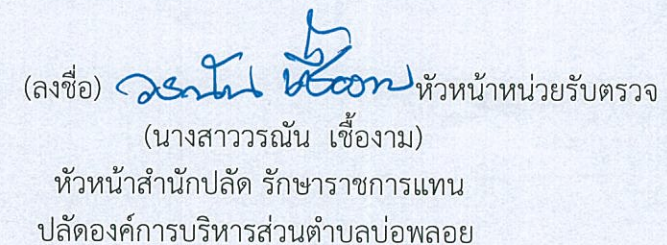 (ลงชื่อ) วรณัน เชื้องาม หัวหน้าหน่วยรับตรวจ
(นางสาววรณัน เชื้องาม)
หัวหน้าสำนักปลัด รักษาราชการแทน
ปลัดองค์การบริหารส่วนตำบลบ่อพลอย